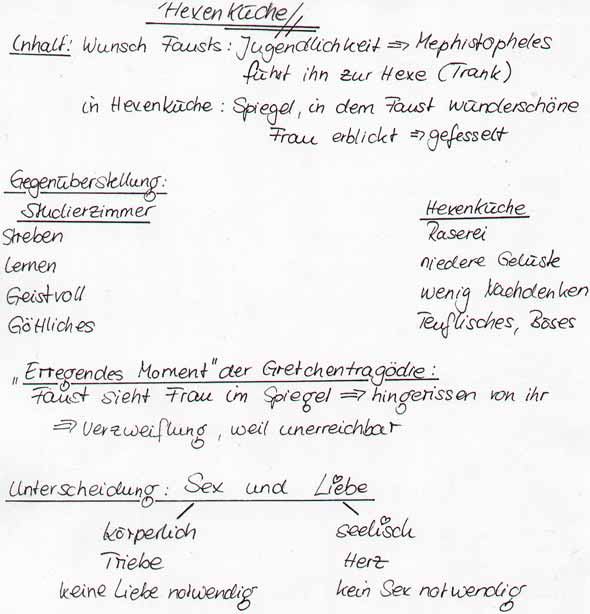 Hexenküche
Inhalt: Wunsch Fausts: Jugendlichkeit ⇒ Mephistopheles
führt ihn zur Hexe (Trank)
in Hexenküche: Spiegel, in dem Faust wunderschöne
Frau erblickt ⇒ gefesselt
Gegenüberstellung:
Studierzimmer Hexenküche
Streben Raserei
Lernen niedere Gelüste
Geistvoll wenig Nachdenken
Göttliches Teuflisches, Böses
„Erregendes Moment" der Gretchentragödie:
Faust sieht Frau im Spiegel ⇒ hingerissen von ihr
⇒ Verzweiflung, weil unerreichbar
Unterscheidung: Sex und Liebe
körperlich seelisch
Triebe Herz
keine Liebe notwendig kein Sex notwendig